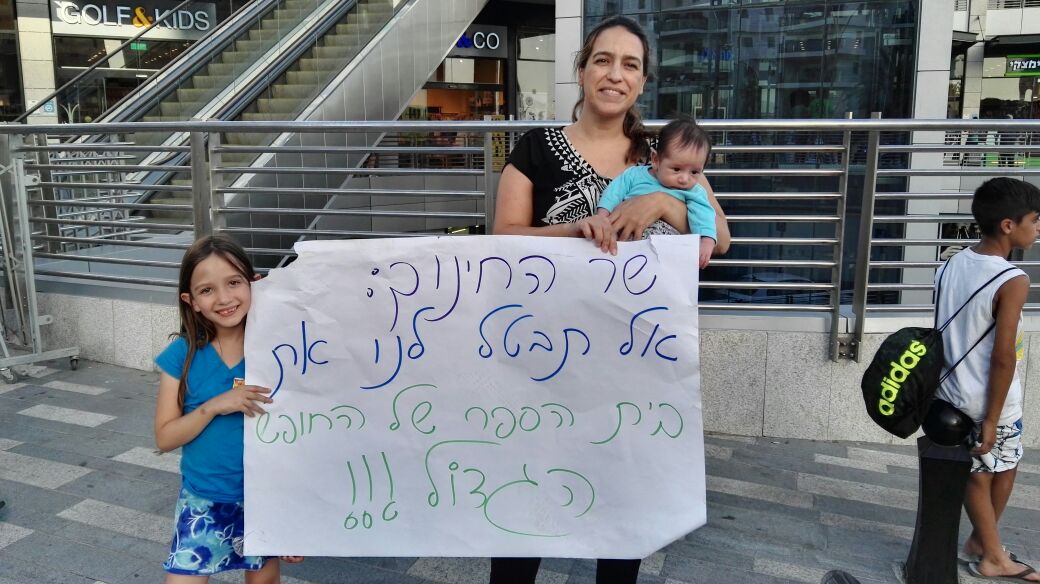 GOLF & KIDS
& CO
שר החינוך:
אל תבטל לנו את
בית הספר של החופש
הגדול !!!
adidas